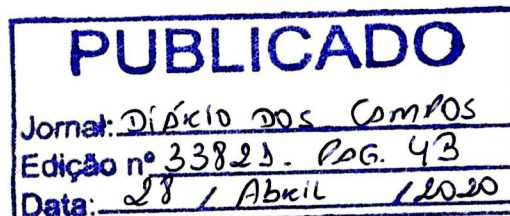 PUBLICADO
Jornal: DIÁRIO DOS CAMPOS
Edição nº 33821. PAG. 4B
Data: 28 / Abril / 2020